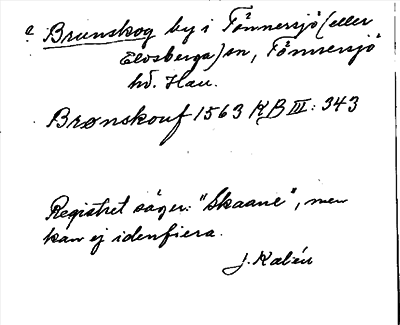 Brunskog by i Tönnersjö (eller
Elvsberga) sn, Tönnersjö
hd. Hall.
Brønskouf 1563 KB III: 343
Registret säger: "Skaane", men
kan ej idenfiera.
J. Kalén